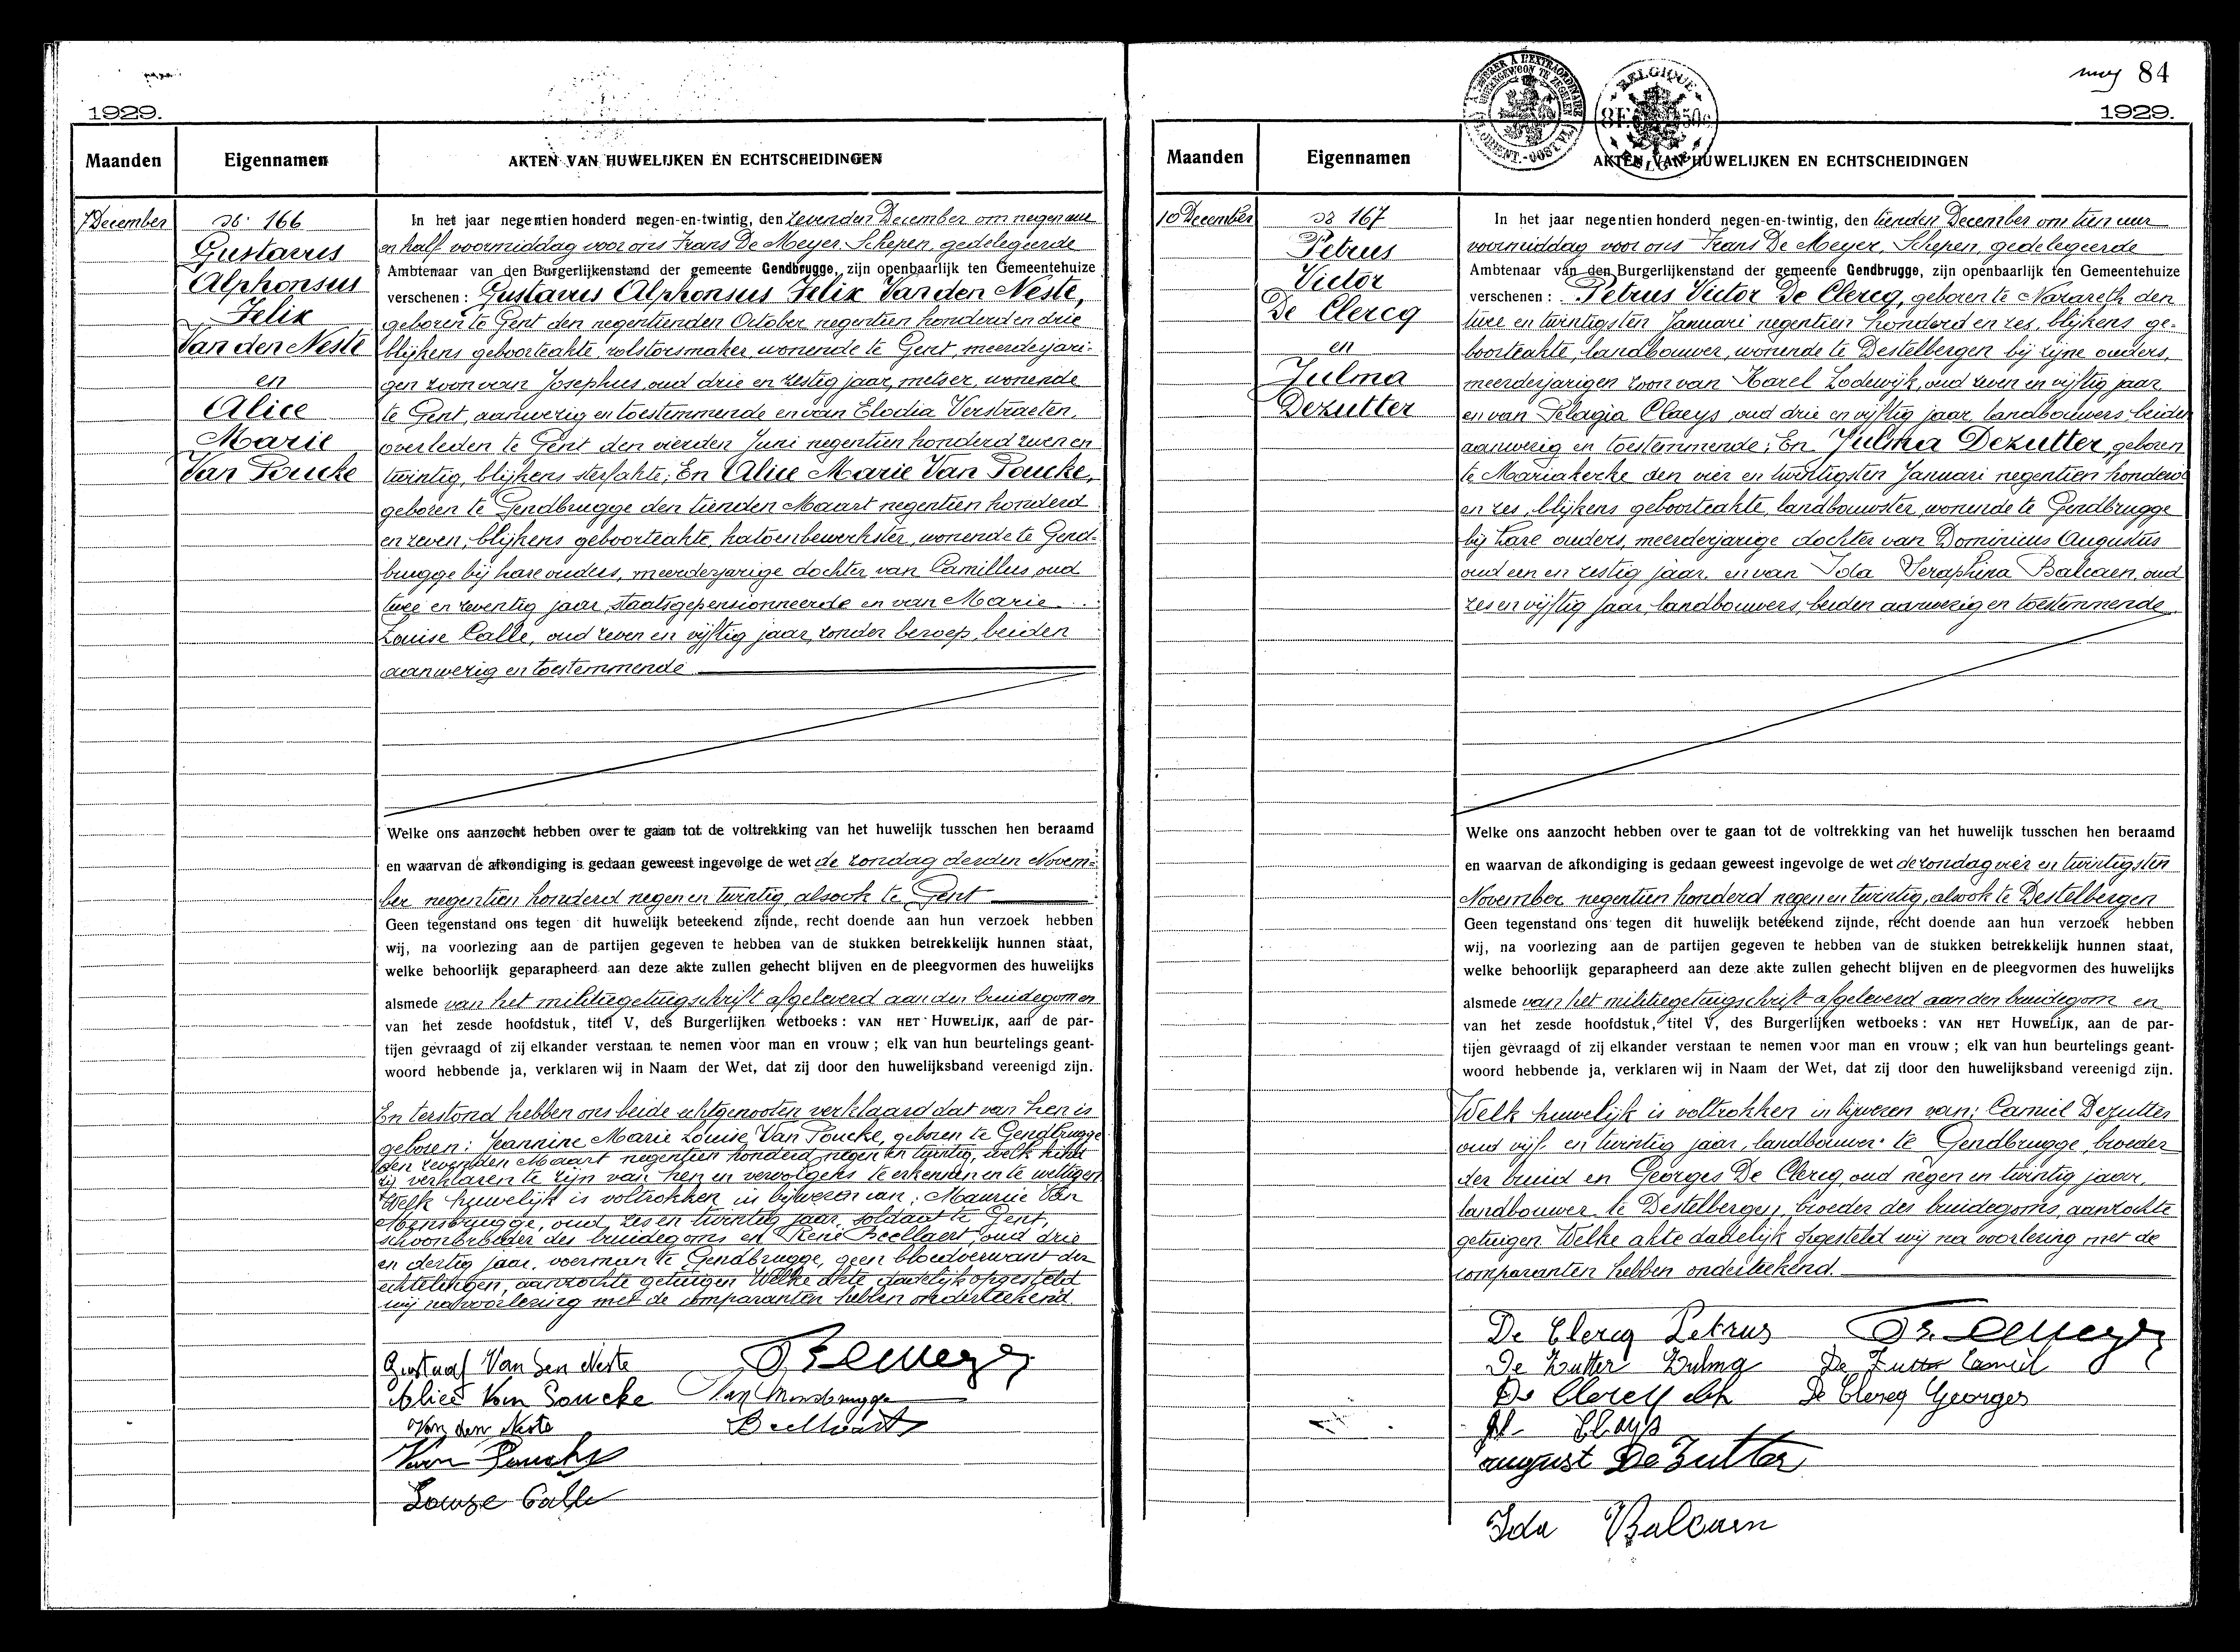 1929.
Maanden
Eigennamen
AKTEN VAN HUWELIJKEN EN ECHTSCHEIDINGEN
7 December
No 166
Gustavus
Alphonsus
Felix
Van den Neste
en
Alice
Marie
Van Poucke
In het jaar negentien honderd negen-en-twintig, den zevenden December om negen uur
en half voormiddag voor ons Frans De Meyer, Schepen, gedelegeerde
Ambtenaar van den Burgerlijkenstand der gemeente Gendbrugge, zijn openbaarlijk ten Gemeentehuize
verschenen : Gustavus Alphonsus Felix Van den Neste,
geboren te Gent den negentienden October negentien honderd en drie
blijkens geboorteakte, rolstorsmaker, wonende te Gent, meerderjari-
gen zoon van Josephus, oud drie en zestig jaar, metser, wonende
te Gent, aanwezig en toestemmende en van Elodia Verstraeten,
overleden te Gent den vierden Juni negentien honderd zeven en
twintig, blijkens sterfakte; En Alice Marie Van Poucke,
geboren te Gendbrugge den tienden Maart negentien honderd
en zeven, blijkens geboorteakte, katoenbewerkster, wonende te Gend-
brugge bij hare ouders, meerderjarige dochter van Camillus, oud
twee en zeventig jaar, staatsgepensionneerde en van Marie
Louise Calle, oud zeven en vijftig jaar, zonder beroep, beiden
aanwezig en toestemmende
Welke ons aanzocht hebben over te gaan tot de voltrekking van het huwelijk tusschen hen beraamd
en waarvan de afkondiging is gedaan geweest ingevolge de wet de zondag derden Novem-
ber negentien honderd negen en twintig, alsook te Gent
Geen tegenstand ons tegen dit huwelijk beteekend zijnde, recht doende aan hun verzoek hebben
wij, na voorlezing aan de partijen gegeven te hebben van de stukken betrekkelijk hunnen staat,
welke behoorlijk geparapheerd aan deze akte zullen gehecht blijven en de pleegvormen des huwelijks
alsmede van het militiegetuigschrift afgeleverd aan den bruidegom en
van het zesde hoofdstuk, titel V, des Burgerlijken wetboeks : VAN HET HUWELIJK, aan de par-
tijen gevraagd of zij elkander verstaan te nemen voor man en vrouw ; elk van hun beurtelings geant-
woord hebbende ja, verklaren wij in Naam der Wet, dat zij door den huwelijksband vereenigd zijn.
En terstond hebben ons beide echtgenooten verklaard dat van hen is
geboren: Jeannine Marie Louise Van Poucke, geboren te Gendbrugge
den zevenden Maart negentien honderd negen en twintig, welk kind
zij verklaren te zijn van hen en vervolgens te erkennen en te wettigen
Welk huwelijk is voltrokken in bijwezen van: Maurice Van
Mensbrugge, oud zes en twintig jaar, soldaat te Gent,
schoonbroeder des bruidegoms en René Beellaert, oud drie
en dertig jaar, voerman te Gendbrugge, geen bloedverwant der
echtelingen, aanzochte getuigen Welke akte dadelijk opgesteld
wij na voorlezing met de comparanten hebben onderteekend
Gustaaf Van den Neste
Alice Van Poucke
Van Mensbrugge
Van den Neste
Beellaert
Van Poucke
Louise Calle
84
1929.
A TIMBRER A L'EXTRAORDINAIRE
BELGIQUE
8F 50c
BELGIE
Maanden
Eigennamen
AKTEN VAN HUWELIJKEN EN ECHTSCHEIDINGEN
10 December
No 167
Petrus
Victor
De Clercq
en
Julma
Dezutter
In het jaar negentien honderd negen-en-twintig, den tienden December om tien uur
voormiddag voor ons Frans De Meyer, Schepen, gedelegeerde
Ambtenaar van den Burgerlijkenstand der gemeente Gendbrugge, zijn openbaarlijk ten Gemeentehuize
verschenen : Petrus Victor De Clercq, geboren te Nazareth den
twee en twintigsten Januari negentien honderd en zes, blijkens ge-
boorteakte, landbouwer, wonende te Destelbergen bij zijne ouders,
meerderjarigen zoon van Karel Lodewijk, oud zeven en vijftig jaar
en van Pelagia Claeys, oud drie en vijftig jaar, landbouwers, beiden
aanwezig en toestemmende; En Julma Dezutter, geboren
te Mariakerke den vier en twintigsten Januari negentien honderd
en zes, blijkens geboorteakte, landbouwster, wonende te Gendbrugge
bij hare ouders, meerderjarige dochter van Dominicus Augustus
oud een en zestig jaar, en van Ida Seraphina Balcaen, oud
zes en vijftig jaar, landbouwers, beiden aanwezig en toestemmende
Welke ons aanzocht hebben over te gaan tot de voltrekking van het huwelijk tusschen hen beraamd
en waarvan de afkondiging is gedaan geweest ingevolge de wet de zondag vier en twintigsten
November negentien honderd negen en twintig, alsook te Destelbergen
Geen tegenstand ons tegen dit huwelijk beteekend zijnde, recht doende aan hun verzoek hebben
wij, na voorlezing aan de partijen gegeven te hebben van de stukken betrekkelijk hunnen staat,
welke behoorlijk geparapheerd aan deze akte zullen gehecht blijven en de pleegvormen des huwelijks
alsmede van het militiegetuigschrift afgeleverd aan den bruidegom en
van het zesde hoofdstuk, titel V, des Burgerlijken wetboeks : VAN HET HUWELIJK, aan de par-
tijen gevraagd of zij elkander verstaan te nemen voor man en vrouw ; elk van hun beurtelings geant-
woord hebbende ja, verklaren wij in Naam der Wet, dat zij door den huwelijksband vereenigd zijn.
Welk huwelijk is voltrokken in bijwezen van: Camiel Dezutter
oud vijf en twintig jaar, landbouwer te Gendbrugge, broeder
der bruid en Georges De Clercq, oud negen en twintig jaar,
landbouwer te Destelbergen, broeder des bruidegoms, aanzochte
getuigen. Welke akte dadelijk opgesteld wij na voorlezing met de
comparanten hebben onderteekend.
De Clercq Petrus
De Zutter Zulma
De Zutter Camiel
De Clercq
De Clercq Georges
Claeys
august De Zutter
Ida Balcaen